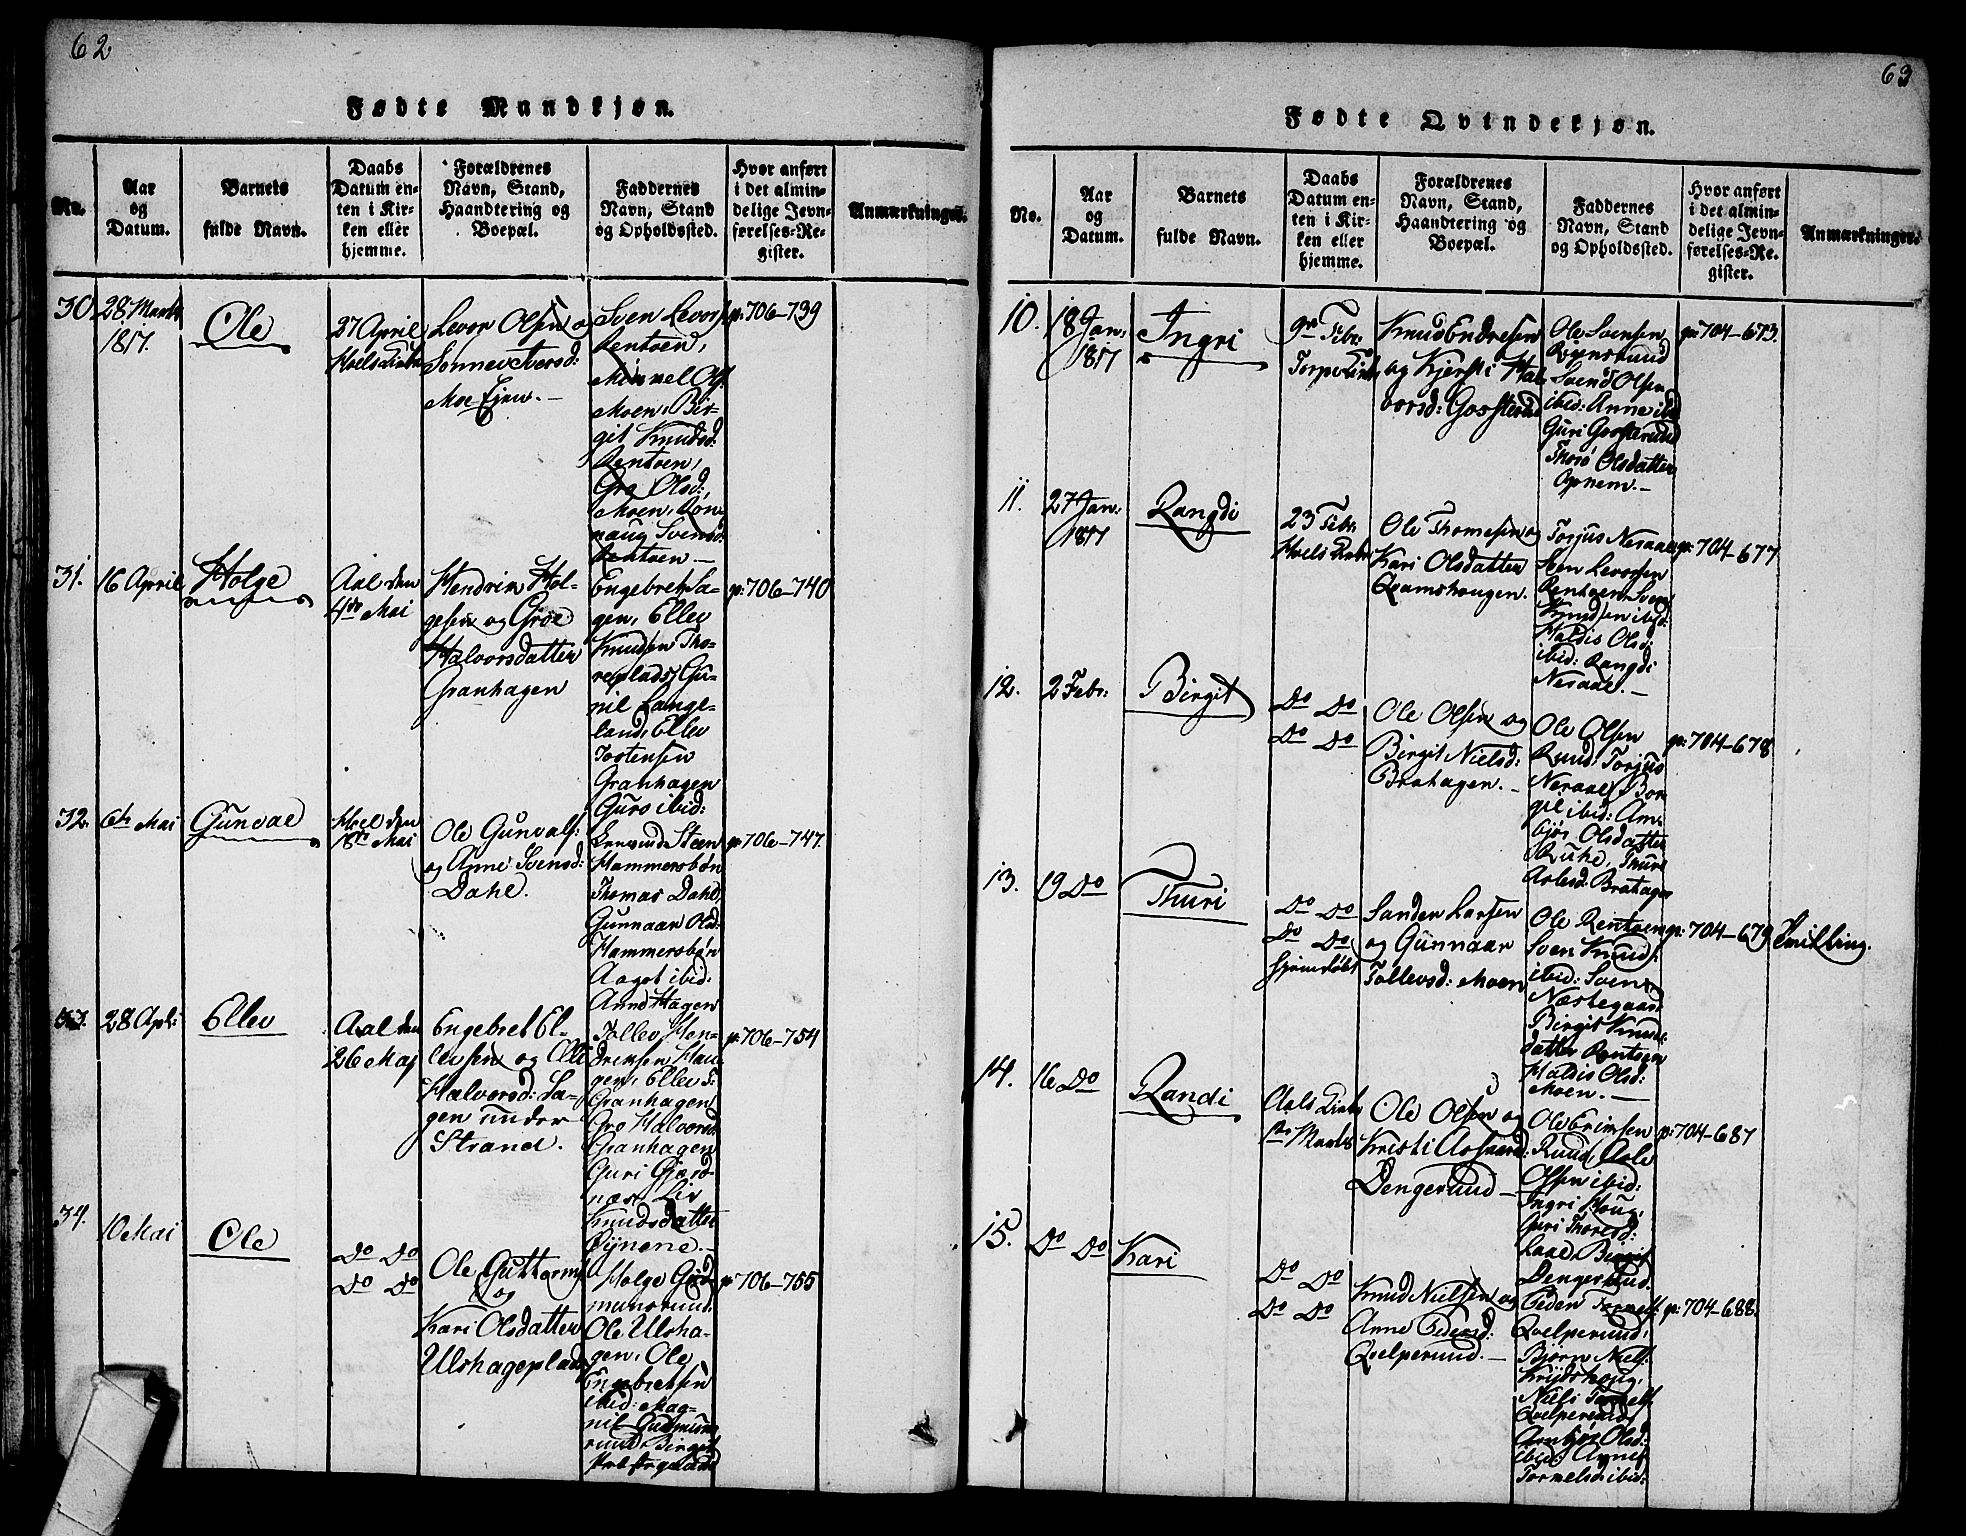 62
Fødte Mandkjøn.
No.
Aar
og
Datum.
Barnets
fulde Navn.
Daabs
Datum en-
ten i Kir-
ken eller
hjemme.
Forældrenes
Navn, Stand,
Haandtering og
Boepæl.
Faddernes
Navn, Stand
og Opholdssted.
Hvor anført
i det almin-
delige Jevn-
førelses-Re-
gister.
Anmærkninger.
30.
28 Marts
1817.
Ole
27 April
Hoels Kirke
Levor Olsen og
Sønnev Iversd:
Moe Ejew.
Sven Levors
Rentoen,
Mikkel Ols
Moen, Bir-
git Knudsd:
Rentoen,
Gro Olsd:,
Moen, Røn-
naug Svensd:
Rentoen —
p: 706-739
31.
16 April
Holge
Aal den
4de Mai
Hendrik Hol-
gesen og Groe
Halvorsdatter
Granhagen
Engebret Sa-
gen, Ellev
Knudsen Tho-
replads, Gu-
nil Lange-
land, Ellev
Tostensen
Granhagen
Guro ibid:
p: 706-740
32.
6te Mai
Gunval
Hoel den
18de Mai
Ole Gunvals:
og Anne Svensd:
Dahl.
Steen
Hammersbøn
Thomas Dahl,
Gunnaar Olsd:
Hammersbøn
Aagot ibid:
Anne Hagen
p: 706-747.
33.
28 Apl:
Ellev
Aal den
26 Maj
Engebret El-
levsen og
Halvorsd: Sa-
gen under
Strand.
Tollev Hen-
driksen Hau-
gen, Ellev T:
Granhagen
Gro Halvorsd:
Granhagen
Guri Gjord-
næs, Liv
Knudsdatter
Øynene. —
p: 706-754
34.
10 Mai
Ole
Do Do
Do Do
Ole Guttorms
og
Kari Olsdatter
Ulshageplads
Holge Gud-
munsrud.
Ole Ulsha-
gen, Ole
Engebretsen
ibid: Mag-
nil Gudmuns
rud Birgit
p: 706-755
63
Fødte Qvindekjøn.
No.
Aar
og
Datum.
Barnets
fulde Navn.
Daabs
Datum en-
ten i Kir-
ken eller
hjemme.
Forældrenes
Navn, Stand,
Haandtering og
Boepæl.
Faddernes
Navn, Stand
og Opholdssted.
Hvor anført
i det almin-
delige Jevn-
førelses-Re-
gister.
Anmærkninger.
10.
18 Jan.
1817
Ingri
9de Febr.
Torpe Kirke
Knud Endresen
og Kjersti Hal
vorsd: Gosterud
Ole Svensen
Svend Olsen
ibid: Anne ibd
Guri Gosterud
Olsdatter
Opnem. —
p: 704-673.
11.
27 Jan.
1817
Rangdi
23 Febr.
Hoels Kirke
Ole Thomesen og
Kari Olsdatter
Qvamshougen.
Torjus Neraal
Sven Levorsen
Rentoen Sven
Knudsen ibid:
Haldis Olsd:
ibid: Rangdi
Neraal. —
p: 704-677
12.
2 Febr:
Birgit
Do Do
Do Do
Ole Olsen og
Birgit Nielsd:
Brahagen. —
Ole Olsen
Ruud Torjus
Neraal, Bor
gil ibid: Am-
bjør Olsdatter
Ruhe, Thuri
Brahagen
p: 704-678
13.
19 Do
Thuri
Do Do
Do Do
hjemdøbt
Sander Larsen
og Gunnaar
Tollevsd: Moen
Ole Rentoen
Sven Knuds:
ibid: Sven
Næstegaard
Birgit Knuds-
datter Rentoen
Haldis Olsd:
Moen. —
p: 704-679
Tvilling.
14.
16 Do
Randi
Aals Kirke
1ste Marts
Ole Olsen og
Kristi Asmund:
Dengerud —
Ole Erimsen
Ruud, Asle
Olsen ibid:
Ingri Houg,
Guri Thoresd:
Raae Birgit
Dengerud.
p: 704-687
15.
Do Do
Kari
Do Do
Do Do
Knud Nielsen og
Anne Pedersd:
Qvelperud. —
Peder Tormels
Qvelperud,
Bjørn Niels:
Niels Tormels
Qvelperud,
Arnbjør Olsd:
ibid: Anne
Tormelsd: ibid:
p: 704-688.